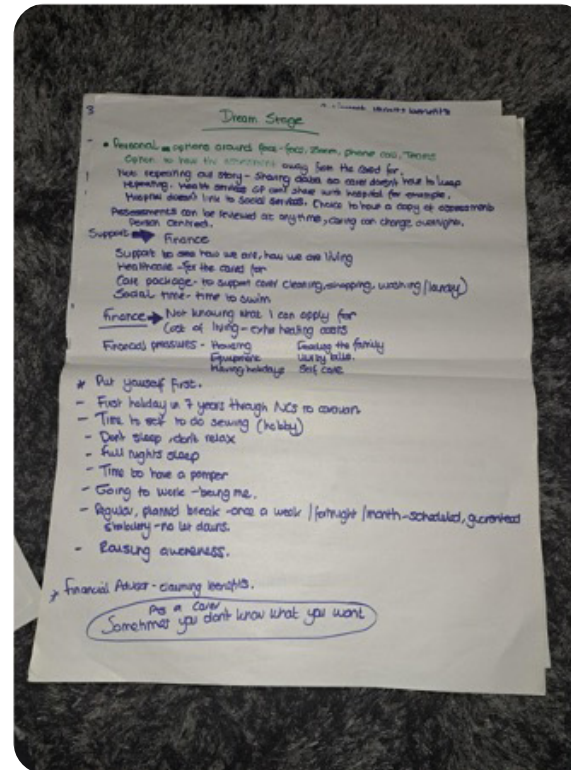 3
Dream Stage
• Personal - options around face-face, Zoom, phone call, Teams
Option to have the assessment away from the cared for.
Not repeating our story - sharing data so carer doesn't have to keep
repeating. Health services GP can't share with hospital for example.
Hospital doesn't link to Social Services. Choice to have a copy of assessment
Assessments can be reviewed at anytime, caring can change overnight.
Person Centred.
Support → Finance
Support to see how we are, how we are living
Healthcare - for the cared for
Care package - to support cover cleaning, shopping, washing (laundry)
Social time - time to swim
Finance → Not knowing what I can apply for
Cost of living - extra heating costs
Financial pressures - Housing Feeding the family
Equipment Utility bills.
Having holidays Self care
* Put yourself first.
- First holiday in 7 years through NCS to caravan
- Time to self to do sewing (hobby)
- Don't sleep, don't relax
- Full nights sleep
- Time to have a pamper
- Going to work - being me.
- Regular, planned break - once a week / fortnight / month - scheduled, guaranteed
- no let downs.
- Raising awareness.
Financial Advisor - claiming benefits.
As a Carer
Sometimes you don't know what you want